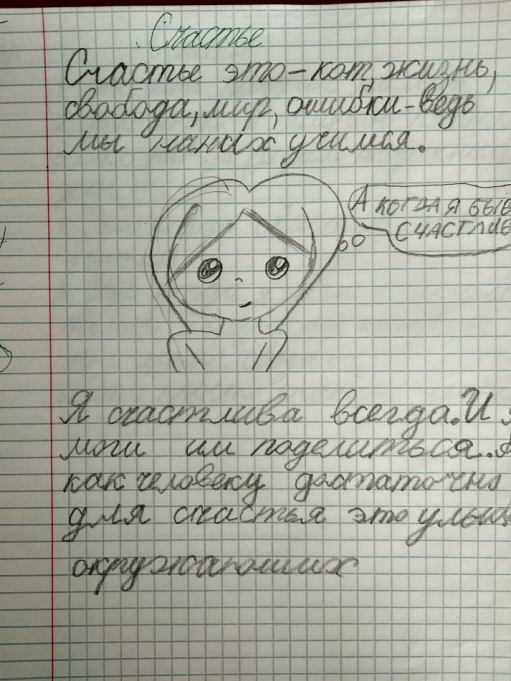 Счастье
Счастье это-кот, жизнь,
свобода, мир, ошибки-ведь
мы наних учимся.
А КОГДА Я БЫВ
СЧАСТЛИВ
Я счастлива всегда. И я
моги им поделиться..
как человеку достаточно
для счастья это улыб
окружающих